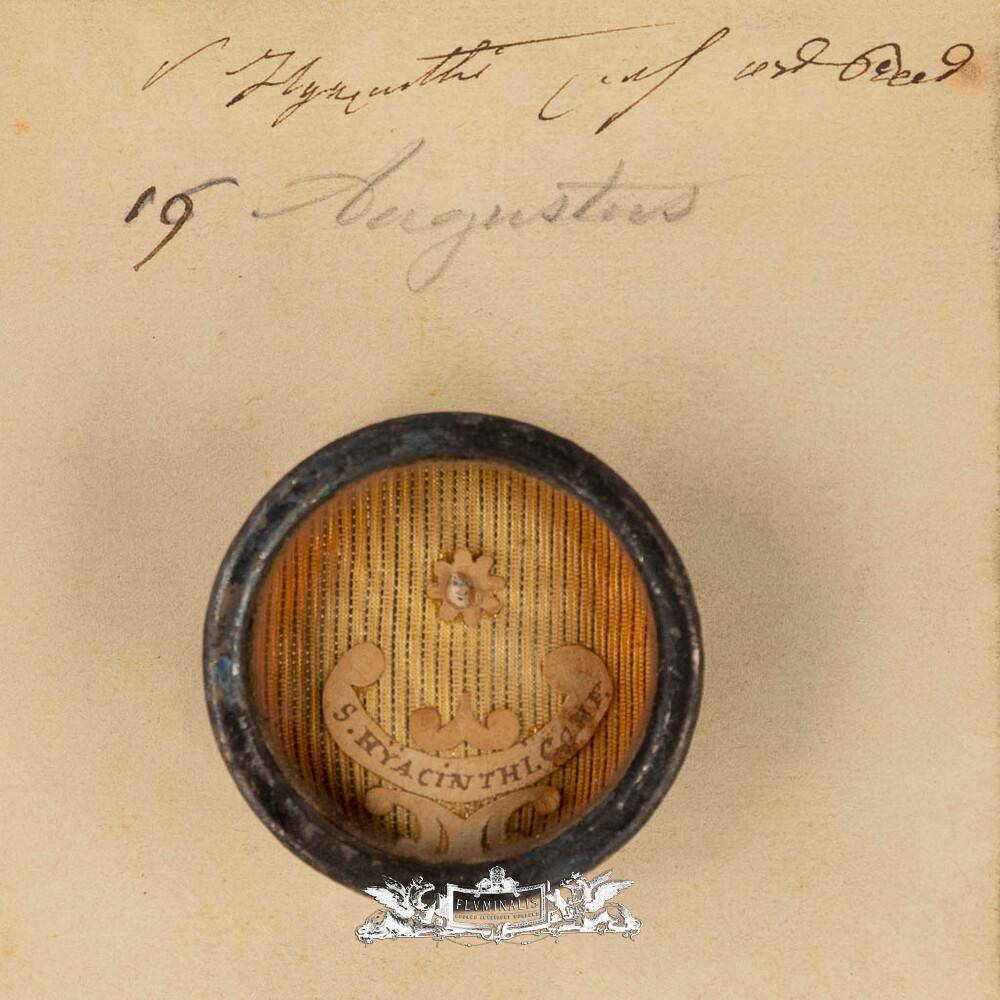 S Hyacinthi conf ord Pred
19 Augustus
S. HYACINTHI. CONF.
FLVMINALIS